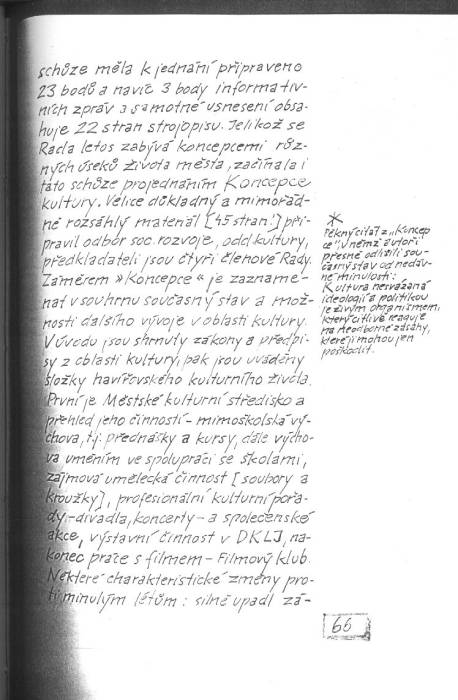 schůze měla k jednání připraveno
23 bodů a navíc 3 body informativ-
ních zpráv a samotné usnesení obsa-
huje 22 stran strojopisu. Jelikož se
Rada letos zabývá koncepcemi růz-
ných úseků života města, začínala i
tato schůze projednáním Koncepce
kultury. Velice důkladný a mimořád-
ně rozsáhlý materiál [45 stran!] při-
pravil odbor soc. rozvoje, odd. kultury,
předkladateli jsou čtyři členové Rady.
Záměrem »Koncepce« je zazname-
nat v souhrnu současný stav a mož-
nosti dalšího vývoje v oblasti kultury.
V úvodu jsou shrnuty zákony a předpi-
sy z oblasti kultury, pak jsou uváděny
složky havířovského kulturního života.
První je Městské kulturní středisko a
přehled jeho činností - mimoškolská vý-
chova, tj. přednášky a kursy, dále výcho-
va uměním ve spolupráci se školami,
zájmová umělecká činnost [soubory a
kroužky], profesionální kulturní pořa-
dy - divadla, koncerty - a společenské
akce, výstavní činnost v DKLJ, na-
konec práce s filmem - Filmový klub.
Některé charakteristické změny pro-
ti minulým létům: silně upadl zá-
*
Pěkný citát z „Koncep
ce“, v němž autoři
přesně odlišili sou-
časný stav od nedáv-
né minulosti:
Kultura nesvázaná
ideologií a politikou
je živým organismem,
který citlivě reaguje
na neodborné zásahy,
které jí mohou jen
poškodit.
66